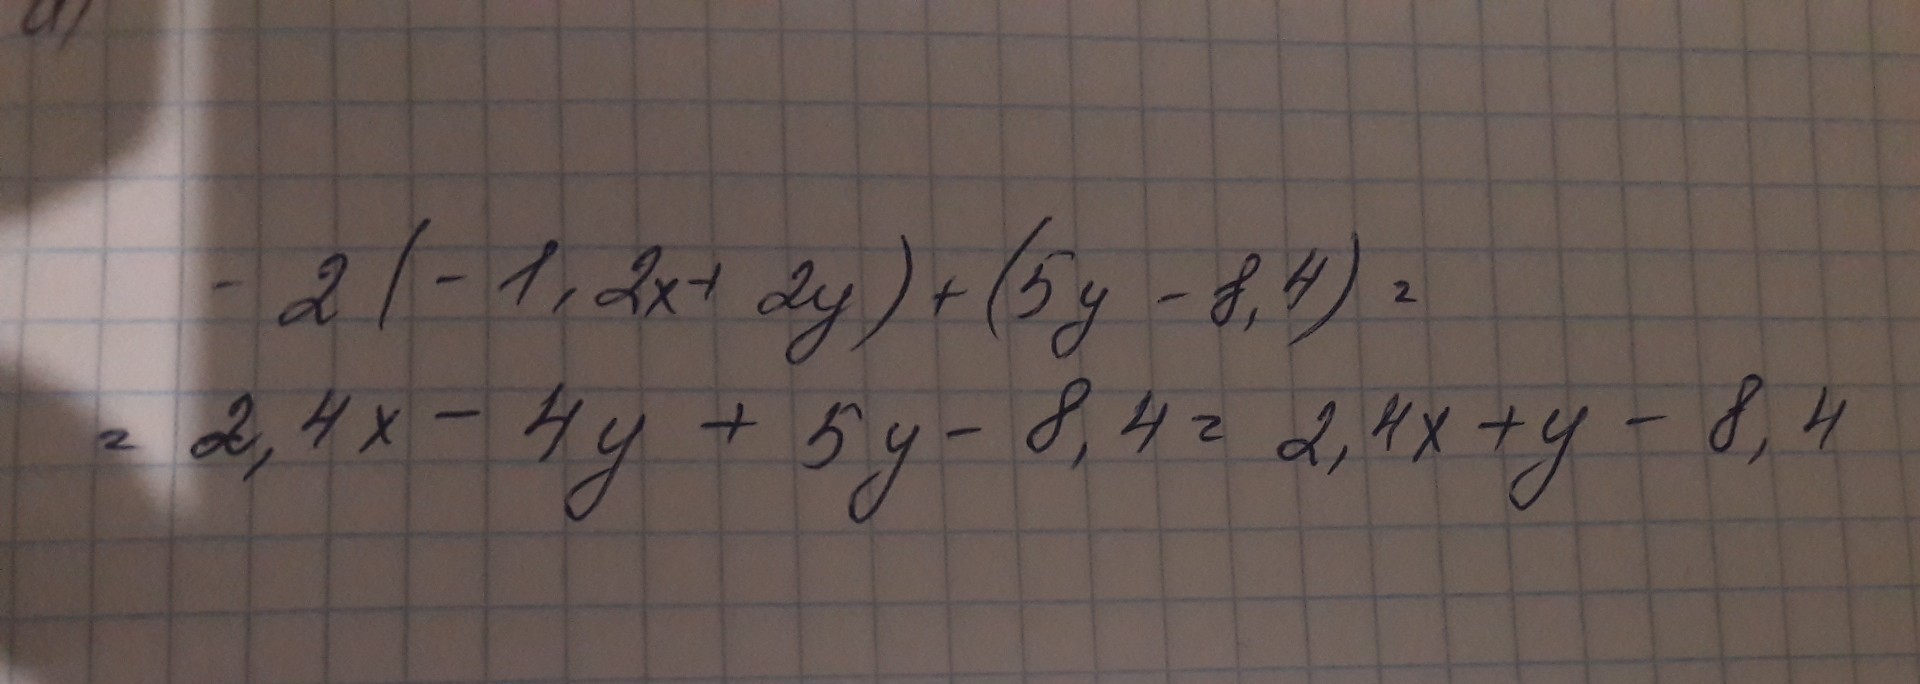 - 2(- 1,2x + 2y) + (5y - 8,4) =
= 2,4x - 4y + 5y - 8,4 = 2,4x + y - 8,4